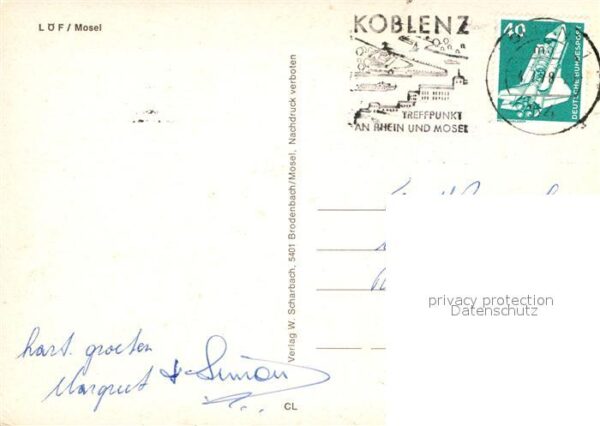 LÖF / Mosel
KOBLENZ
TREFFPUNKT
AN RHEIN UND MOSEL
40
DEUTSCHE BUNDESPOST
Verlag W. Scharbach, 5401 Brodenbach/Mosel, Nachdruck verboten
privacy protection
Datenschutz
hart. groeten
Margreet + Simon
CL